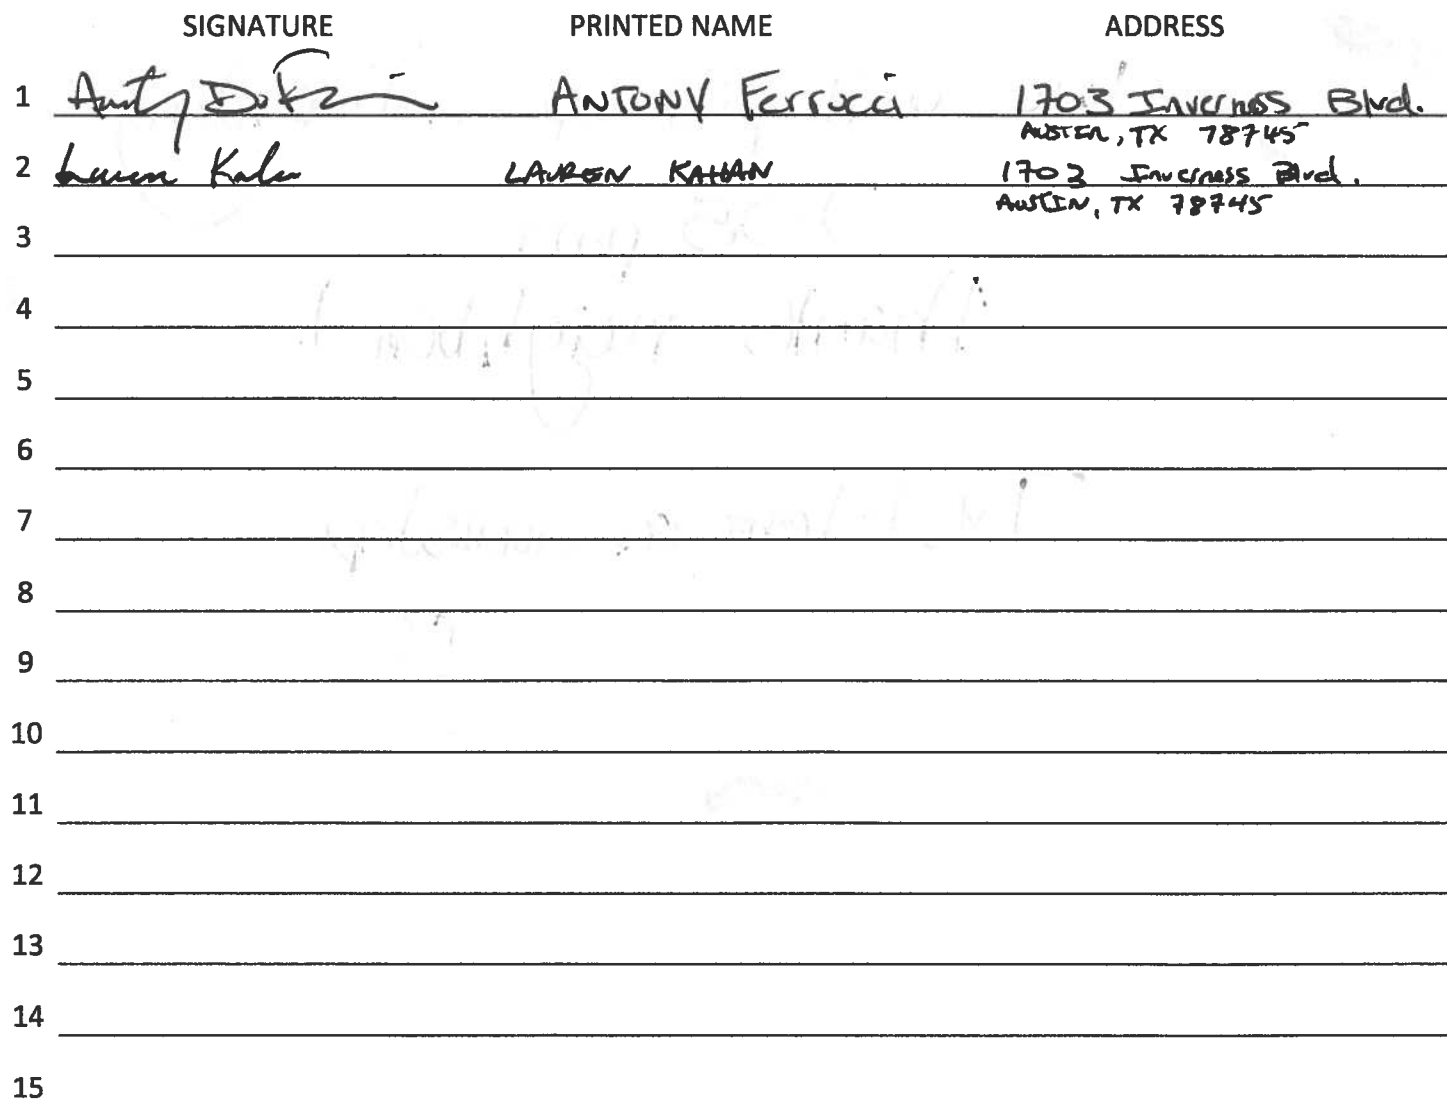 SIGNATURE PRINTED NAME ADDRESS
1 ANTONY Ferrucci 1703 Inverness Blvd.
AUSTIN, TX 78745
2 Lauren Kahan LAUREN KAHAN 1703 Inverness Blvd.
AUSTIN, TX 78745
3
4
5
6
7
8
9
10
11
12
13
14
15